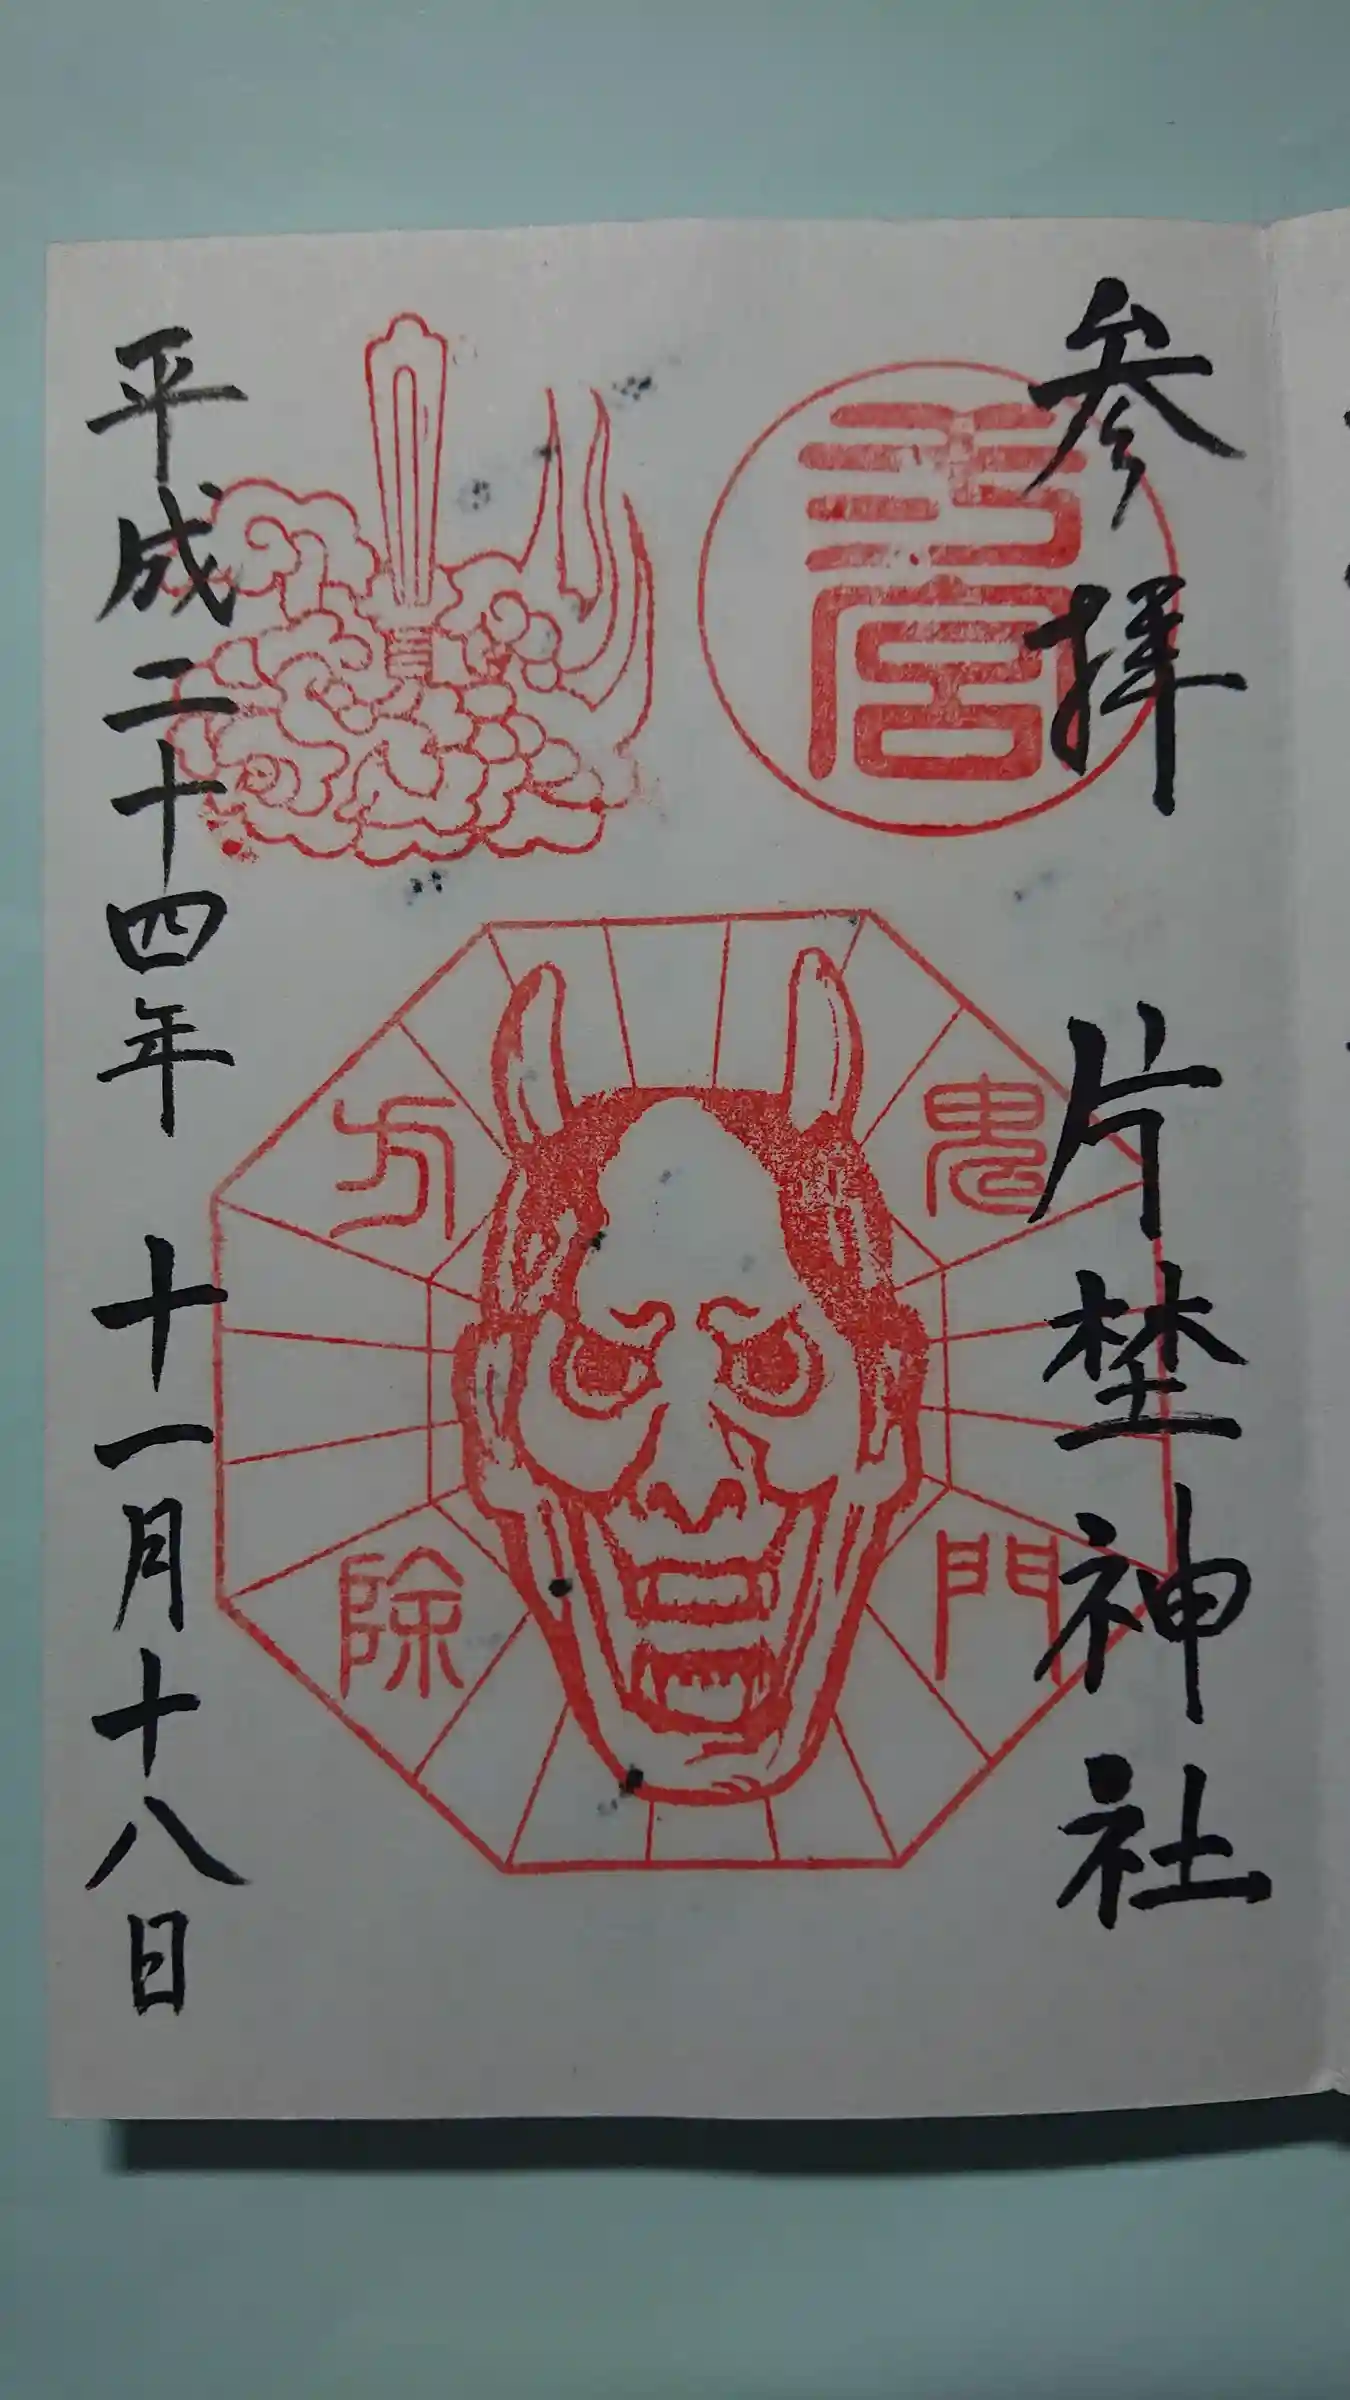 参拝 片埜神社
鬼門
方除
平成二十四年 十一月十八日